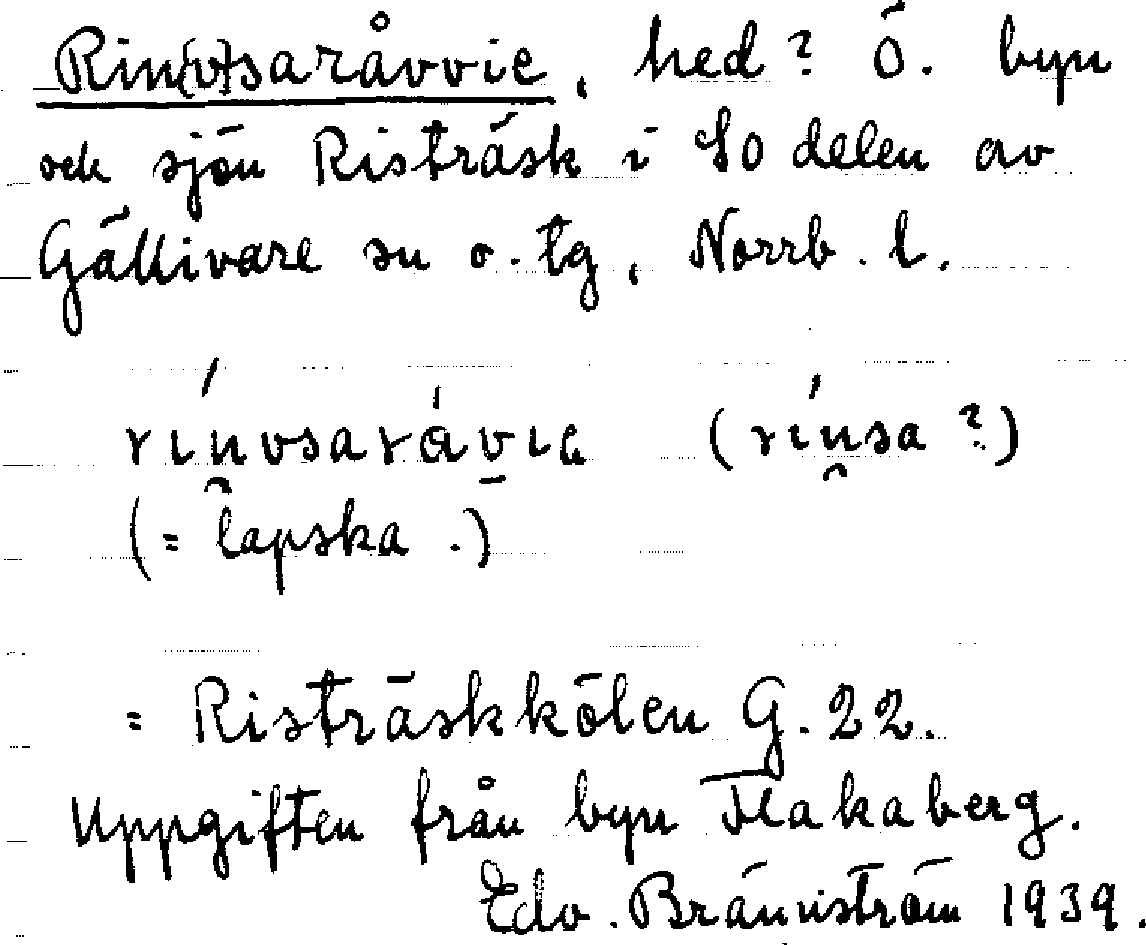 Rin(v)saråvvie, hed? Ö. byn
och sjön Risträsk i SO delen av
Gällivare sn o. tg, Norrb. l.
rínvsaráv̄ie (rínsa?)
(= lapska.)
= Risträskkölen G. 22.
Uppgiften från byn Flakaberg.
Edv. Brännström 1939.